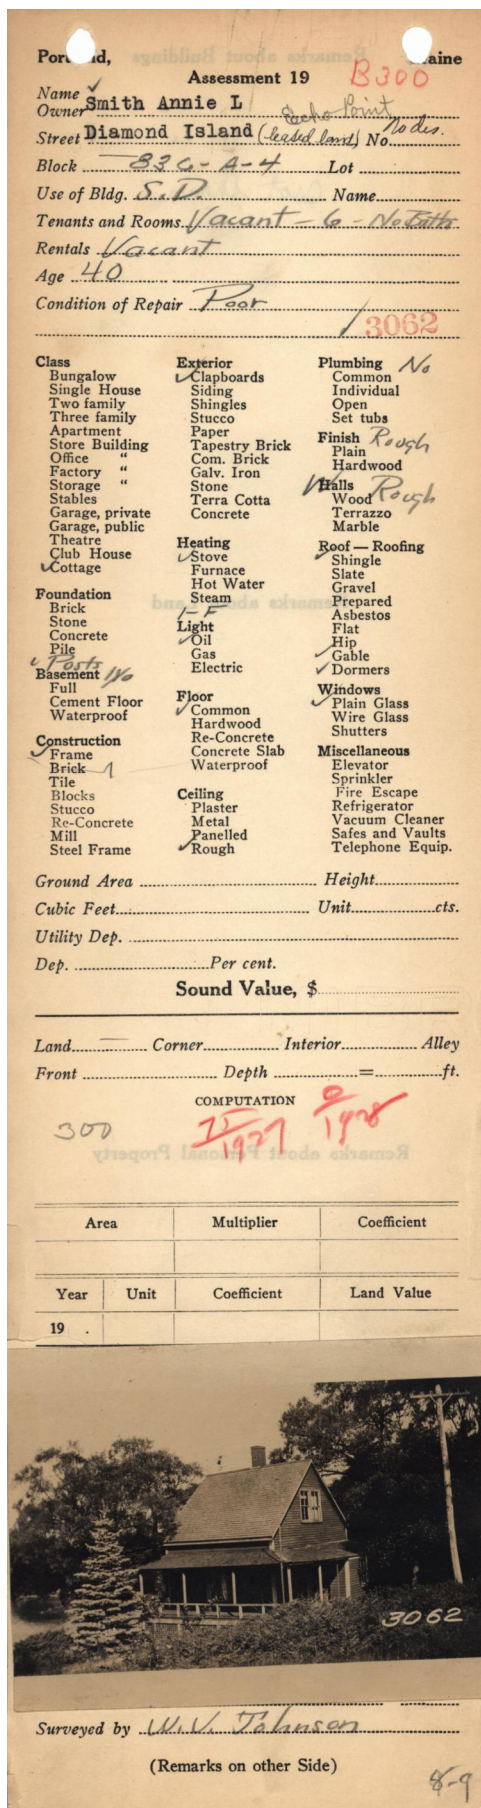 Portland, Maine
Assessment 19 B300
Name ✓
Owner Smith Annie L Echo Point
Street Diamond Island (leased land) No. No des.
Block 83G-A-4 Lot
Use of Bldg. S.D. Name
Tenants and Rooms Vacant - 6 - No Baths
Rentals Vacant
Age 40
Condition of Repair Poor
/ 3062
Class
Bungalow
Single House
Two family
Three family
Apartment
Store Building
Office "
Factory "
Storage "
Stables
Garage, private
Garage, public
Theatre
Club House
✓ Cottage
Foundation
Brick
Stone
Concrete
Pile
✓ Posts
Basement No
Full
Cement Floor
Waterproof
Construction
✓ Frame
Brick 1
Tile
Blocks
Stucco
Re-Concrete
Mill
Steel Frame
Exterior
✓ Clapboards
Siding
Shingles
Stucco
Paper
Tapestry Brick
Com. Brick
Galv. Iron
Stone
Terra Cotta
Concrete
Heating
✓ Stove
Furnace
Hot Water
Steam
1-F
Light
✓ Oil
Gas
Electric
Floor
✓ Common
Hardwood
Re-Concrete
Concrete Slab
Waterproof
Ceiling
Plaster
Metal
Panelled
✓ Rough
Plumbing No
Common
Individual
Open
Set tubs
Finish Rough
Plain
Hardwood
Halls
Wood Rough
Terrazzo
Marble
Roof — Roofing
✓ Shingle
Slate
Gravel
Prepared
Asbestos
Flat
Hip
✓ Gable
✓ Dormers
Windows
✓ Plain Glass
Wire Glass
Shutters
Miscellaneous
Elevator
Sprinkler
Fire Escape
Refrigerator
Vacuum Cleaner
Safes and Vaults
Telephone Equip.
Ground Area Height
Cubic Feet Unit cts.
Utility Dep.
Dep. Per cent.
Sound Value, $
Land Corner Interior Alley
Front Depth = ft.
COMPUTATION
300 1927 1928
Area Multiplier Coefficient
Year Unit Coefficient Land Value
19 .
3062
Surveyed by W.V. Johnson
(Remarks on other Side)
8-9